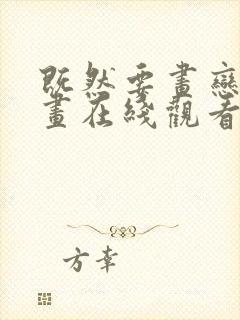 既然要畫戀
畫在綫觀看
方幸